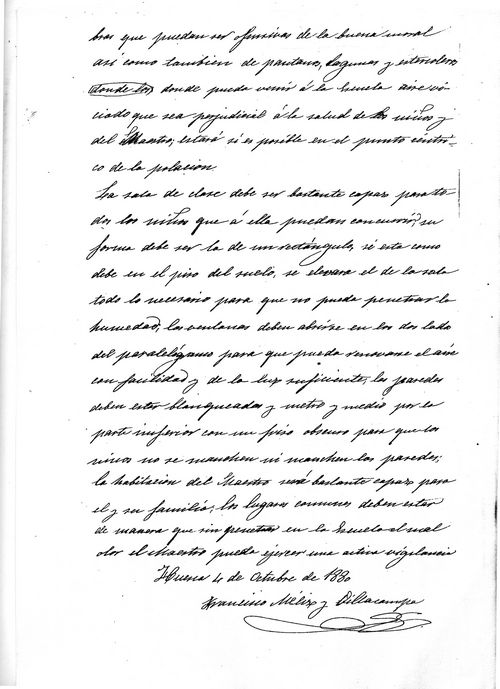 bras que puedan ser ofensivas de la buena moral
así como tambien de pantanos, lagunas y estercoleros
donde los donde pueda venir á la Escuela aire vi-
ciado que sea perjudicial á la salud de los niños y
del Maestro; estará si es posible en el punto céntri-
co de la polacion.
La sala de clase debe ser bastante capaz para to-
dos los niños que á ella puedan concurrir; su
forma debe ser la de un rectángulo, si esta como
debe en el piso del suelo, se elevara el de la sala
todo lo necesario para que no pueda penetrar la
humedad, las ventanas deben abrirse en los dos lado
del paralelógramo para que pueda renovarse el aire
con facilidad y de la luz suficiente, las paredes
deben estar blanqueadas y metro y medio por la
parte inferior con un friso obscuro para que los
niños no se manchen ni manchen las paredes;
la habitacion del Maestro será bastante capaz para
el y su familia; los lugares comunes deben estar
de manera que sin penetrar en la Escuela el mal
olor el Maestro pueda ejercer una activa vigilancia
Huesca 4 de Octubre de 1880
Francisco Méliz y Villacampa